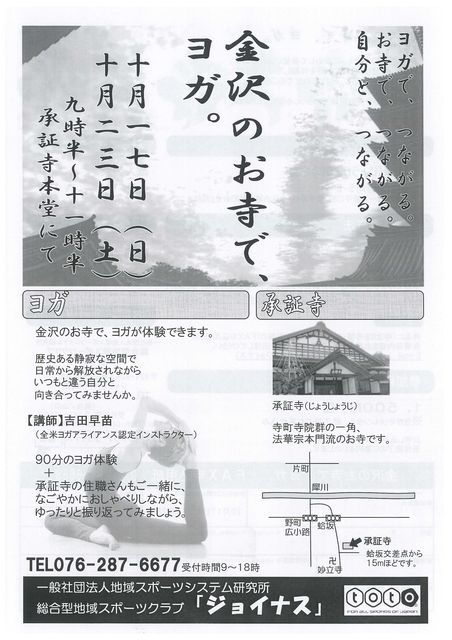 ヨガで、つながる。
お寺で、つながる。
自分と、つながる。
金沢のお寺で、
ヨガ。
十月一七日（日）
十月二三日（土）
九時半～十一時半
承証寺本堂にて
ヨガ
金沢のお寺で、ヨガが体験できます。
歴史ある静寂な空間で
日常から解放されながら
いつもと違う自分と
向き合ってみませんか。
【講師】吉田早苗
（全米ヨガアライアンス認定インストラクター）
90分のヨガ体験
＋
承証寺の住職さんもご一緒に、
なごやかにおしゃべりしながら、
ゆったりと振り返ってみましょう。
承証寺
承証寺（じょうしょうじ）
寺町寺院群の一角、
法華宗本門流のお寺です。
片町
犀川
野町
広小路
蛤坂
承証寺
蛤坂交差点から
15mほどです。
卍
妙立寺
TEL076-287-6677受付時間9～18時
一般社団法人地域スポーツシステム研究所
総合型地域スポーツクラブ「ジョイナス」
toto
FOR ALL SPORTS OF JAPAN